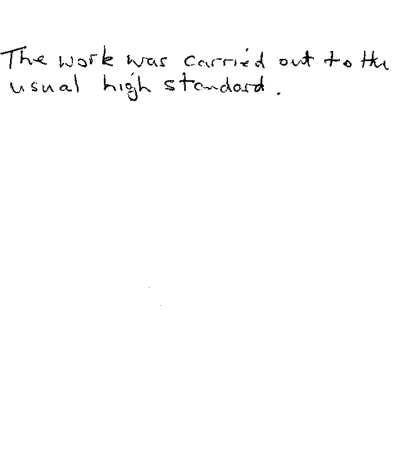 The work was carried out to the
usual high standard.